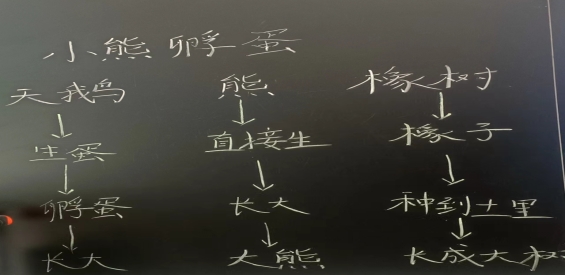 小熊孵蛋
天鹅 熊 橡树
↓ ↓ ↓
生蛋 直接生 橡子
↓ ↓ ↓
孵蛋 长大 种到土里
↓ ↓ ↓
长大 大熊 长成大树